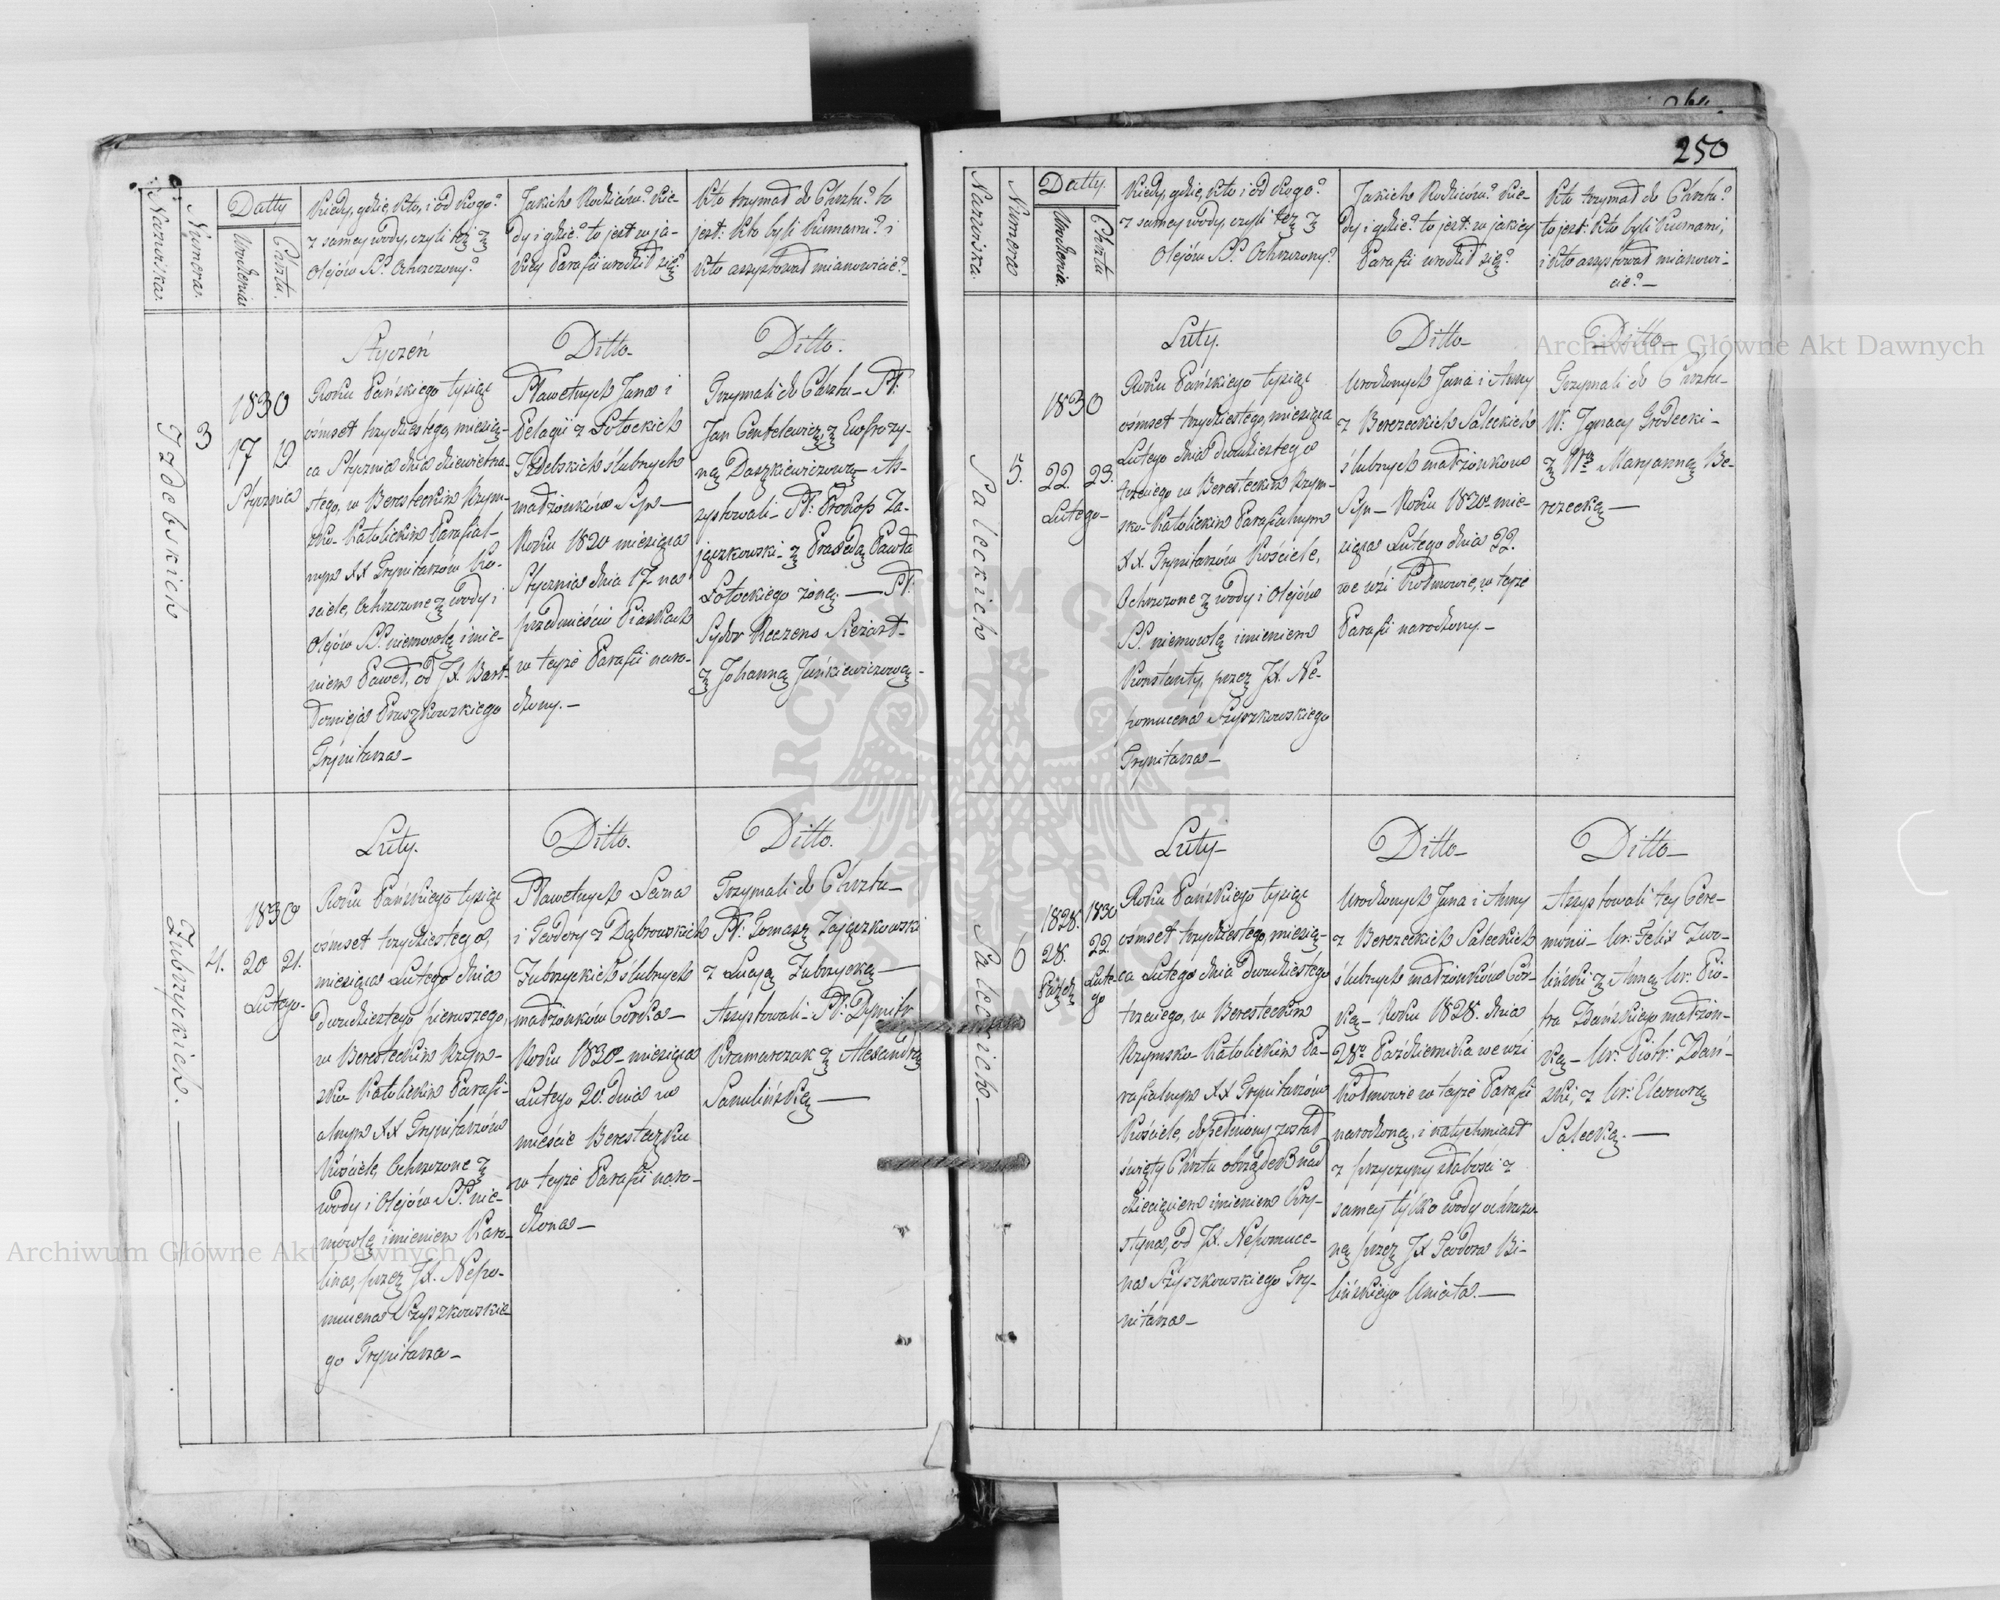 250
Nazwiska.
Numera.
Datty
Urodzenia.
Chrztu.
Kiedy, gdzie, kto, i od kogo?
z samey wody, czyli też z
Olejów SS. Ochrzczony?
Jakich Rodziców? Kie-
dy i gdzie? to jest w ja-
kiey Parafii urodził się?
Kto trzymał do Chrztu? to
jest: kto byli Kumami? i
kto assystował mianowicie?
Izdebskich
3
1830
17 19
Stycznia
Styczeń
Roku Pańskiego tysiąc
ośmset trzydziestego, miesią-
ca Stycznia dnia dziewietna-
stego, w Beresteckim Rzym-
sko-Katolickim Parafial-
nym XX Trynitarzów Ko-
sciele, Ochrzczone z wody i
Olejów SS. niemowlę imie-
niem Paweł, od JX. Bart-
łomieja Pruszkowskiego
Trynitarza
Ditto
Sławetnych Jana i
Pelagii z Potockich
Izdebskich ślubnych
małżonków Syn
Roku 1830 miesiąca
Stycznia dnia 17 na
przedmieściu Piaskach
w teyże Parafii naro-
dzony.
Ditto.
Trzymali do Chrztu St:
Jan Centelewicz, z Eufrozy-
ną Daszkiewiczową As-
systowali St: Prokop Za-
jączkowski z Praxedą Pawła
Potockiego żoną St:
Sydor Reczens
z Johanną Juńkiewiczową
Zubrzyckich.
4.
1830
20 21.
Lutego
Luty.
Roku Pańskiego tysiąc
ośmset trzydziestego,
miesiąca Lutego dnia
dwudziestego pierwszego,
w Beresteckim Rzym-
sko Katolickim Parafi-
alnym XX Trynitarzów
Kościele, Ochrzczone z
wody i Olejów SS. nie-
mowlę imieniem Karo-
lina, przez JX. Nepo-
mucena Szyszkowskie-
go Trynitarza
Ditto.
Sławetnych Leona
i Teodory z Dąbrowskich
Zubrzyckich ślubnych
małżonków Córka
Roku 1830 miesiąca
Lutego 20. dnia w
mieście Beresteczku
w teyże Parafii naro-
dzona
Ditto.
Trzymali do Chrztu
St: Tomasz Zajączkowski
z Łucją Zubrzycką
Assystowali St: Dymitr
Kramarczak z Alexandrą
Samulińską
Nazwiska.
Numera
Datty.
Urodzenia.
Chrztu
Kiedy, gdzie, kto i od kogo?
z samey wody, czyli też z
Olejów SS. Ochrzczony?
Jakich Rodziców? Kie-
dy i gdzie? to jest: w jakiey
Parafii urodził się?
Kto trzymał do Chrztu?
to jest: kto byli Kumami,
i kto assystował mianowi-
cie?
Saleckich
5.
1830
22. 23.
Lutego
Luty.
Roku Pańskiego tysiąc
ośmset trzydziestego, miesiąca
Lutego dnia dwudziestego
trzeciego w Beresteckim Rzym-
sko-Katolickim Parafialnym
XX. Trynitarzów Kościele,
Ochrzczone z wody i Olejów
SS. niemowlę imieniem
Konstanty, przez JX. Ne-
pomucena Szyszkowskiego
Trynitarza
Ditto
Urodzonych Jana i Anny
z Berezeckich Saleckich
ślubnych małżonków
Syn Roku 1830 mie-
siąca Lutego dnia 22.
we wsi Kołmowie, w teyże
Parafii narodzony.
Ditto
Trzymali do Chrztu
W: Ignacy Grodecki
z Wą Maryanną Be-
rezecką
Saleckich
6
1828. 1830
28. 22
Paźdz: Lute-
go
Luty
Roku Pańskiego tysiąc
ośmset trzydziestego, miesią-
ca Lutego dnia dwudziestego
trzeciego, w Beresteckim
Rzymsko-Katolickim Pa-
rafialnym XX Trynitarzów
Kościele, dopełniony został
święty Chrztu obrządek nad
dziecięciem imieniem Kry-
styna, od JX. Nepomuce-
na Szyszkowskiego Try-
nitarza
Ditto
Urodzonych Jana i Anny
z Berezeckich Saleckich
ślubnych małżonków Cór-
ką Roku 1828. dnia
28go Października we wsi
Kołmowie w teyże Parafii
narodzoną, i natychmiast
z przyczyny słabości z
samey tylko wody ochrzczo-
ną przez JX Teodora Bi-
lińskiego Uniata.
Ditto
Assystowali tey Cere-
monii Ur: Felix Zwo-
liński z Anną Ur: Pio-
tra Zdańskiego małżon-
ką Ur: Piotr Zdań-
ski, z Ur: Eleonorą
Salecką.
Archiwum Główne Akt Dawnych
Archiwum Główne Akt Dawnych